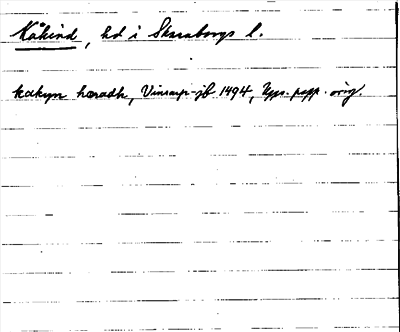 Kåkind, hd i Skaraborgs l.
kakyn haradh, Vinsarp-jb 1494, Upps. papp. orig.